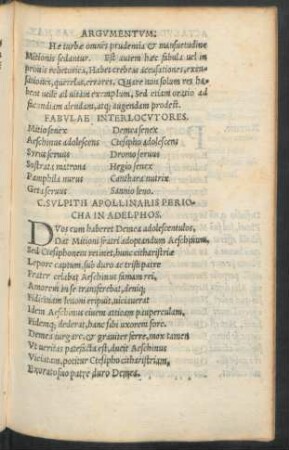 ARGVMENTVM.
Hæ turbæ omnes prudentia & mansuetudine
Mitionis sedantur. Est autem hæc fabula uel in
primis rhetorica, Habet crebras accusationes, excu-
sationes, querelas, Quare non solum res ha-
bent utile ad uitam exemplum, Sed etiam oratio ad
facundiam alendam, atq; augendam prodest.
FABVLAE INTERLOCVTORES.
Mitio senex Demea senex
Aeschinus adolescens Ctesipho adolescens
Syrus seruus Dromo seruus
Sostrata matrona Hegio senex
Pamphila nurus Canthara nutrix
Geta seruus Sannio leno.
C. SVLPITII APOLLINARIS PERIO-
CHA IN ADELPHOS.
DVos cum haberet Demea adolescentulos,
Dat Mitioni fratri adoptandum Aeschinum,
Sed Ctesiphonem retinet, hunc citharistriæ
Lepore captum sub duro ac tristi patre
Frater celabat Aeschinus famam rei,
Amorem in se transferebat, deniq;
Fidicinam lenoni eripuit, uitiauerat
Idem Aeschinus ciuem atticam pauperculam,
Fidemq; dederat, hanc sibi uxorem fore.
Demea iurgare, & grauiter ferre, mox tamen
Vt ueritas patefacta est, ducit Aeschinus
Vitiatam, potitur Ctesipho citharistriam,
Exorato suo patre duro Demea.